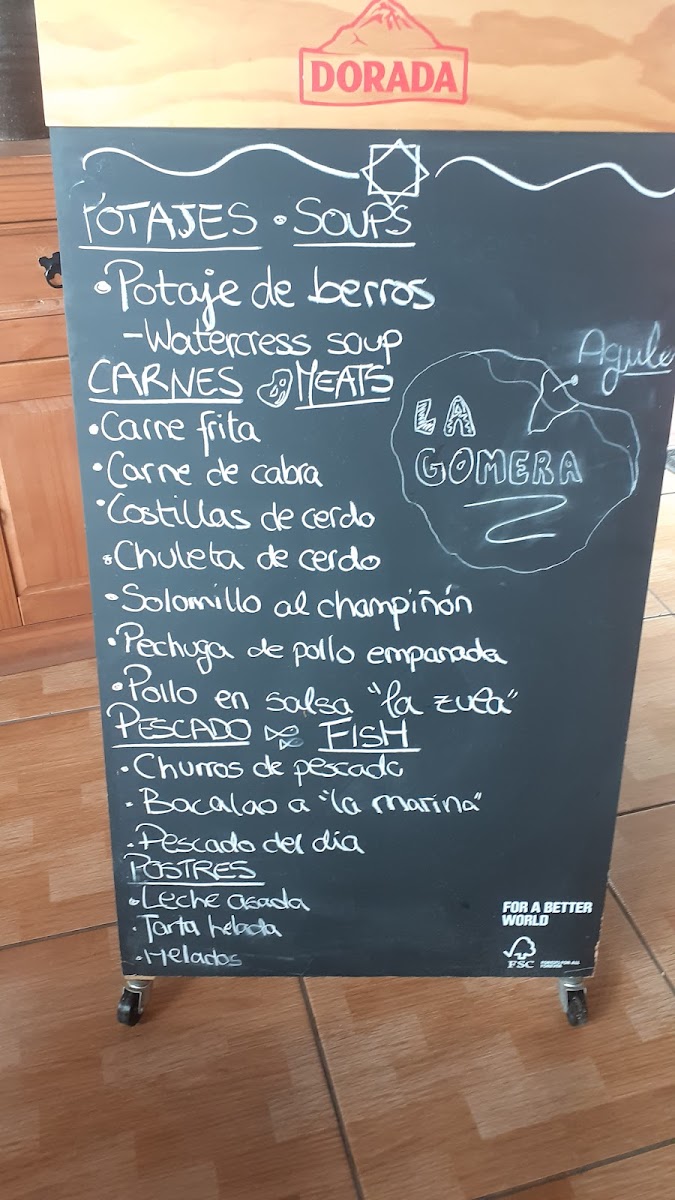 DORADA
POTAJES · SOUPS
· Potaje de berros
- Watercress soup
CARNES MEATS
· Carne frita
· Carne de cabra
· Costillas de cerdo
· Chuleta de cerdo
· Solomillo al champiñón
· Pechuga de pollo empanada
· Pollo en salsa "la zula"
PESCADO FISH
· Churros de pescado
· Bacalao a "la marina"
· Pescado del día
POSTRES
· Leche asada
· Tarta helada
· Helados
Agule
LA
GOMERA
FOR A BETTER
WORLD
FSC
FORESTS FOR ALL
FOREVER